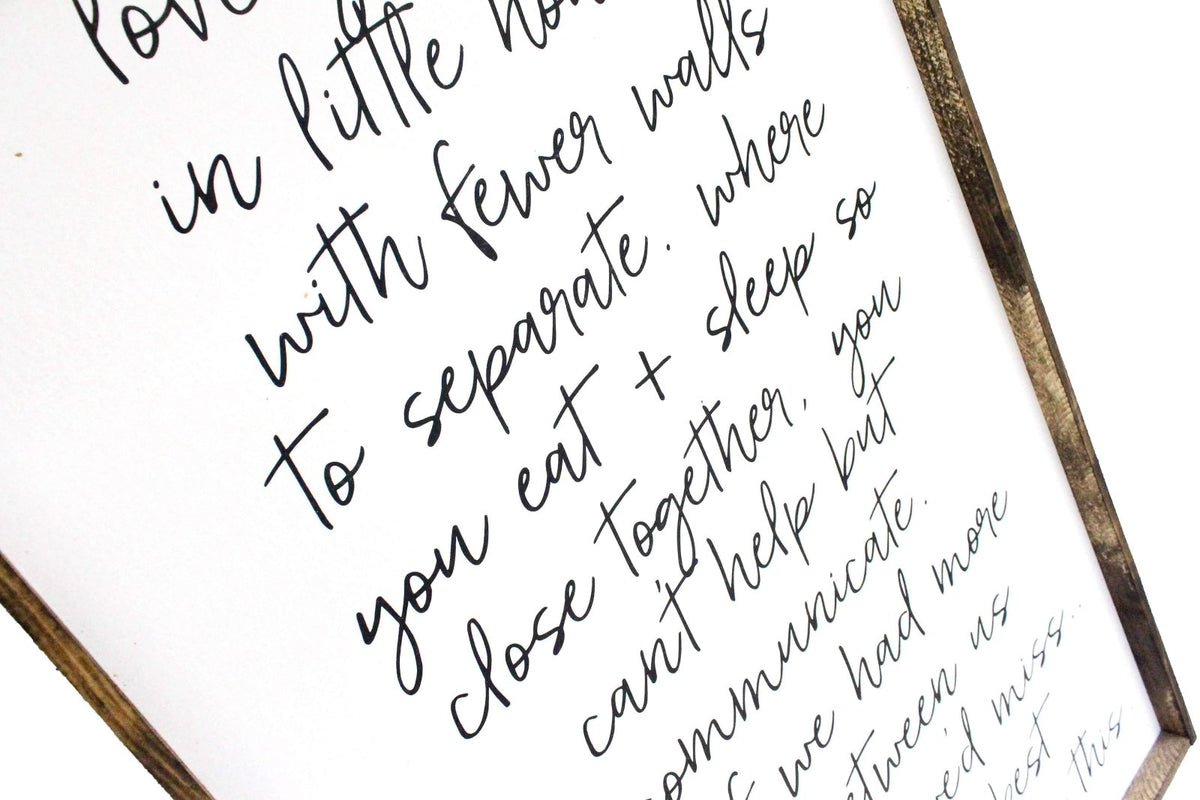 in little
with fewer walls
to separate. where
you eat + sleep so
close together, you
can't help but
communicate.
we had more
us
miss..
this